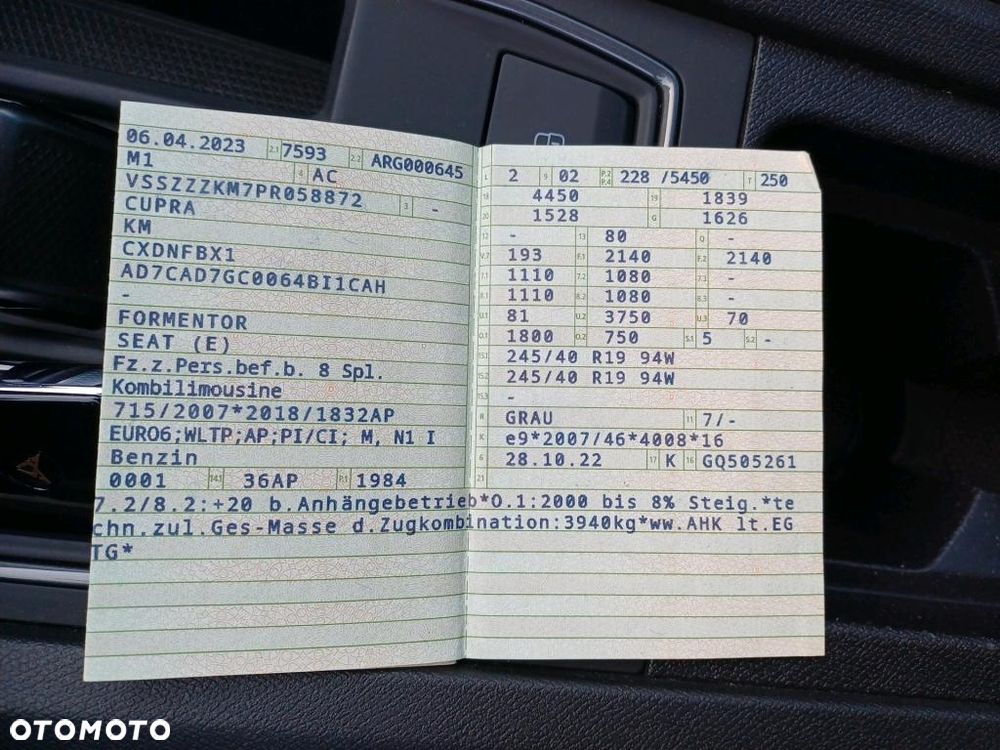 06.04.2023 2.1 7593 2.2 ARG000645
M1 4 AC
VSSZZZKM7PR058872 3 -
CUPRA
KM
CXDNFBX1
AD7CAD7GC0064BI1CAH
-
FORMENTOR
SEAT (E)
Fz.z.Pers.bef.b. 8 Spl.
Kombilimousine
715/2007*2018/1832AP
EURO6;WLTP;AP;PI/CI; M, N1 I
Benzin
0001 14.1 36AP P.1 1984
L 2 9 02 P.2 P.4 228 /5450 T 250
18 4450 19 1839
20 1528 G 1626
12 - 13 80 Q -
V.7 193 F.1 2140 F.2 2140
7.1 1110 7.2 1080 7.3 -
8.1 1110 8.2 1080 8.3 -
U.1 81 U.2 3750 U.3 70
O.1 1800 O.2 750 S.1 5 S.2 -
15.1 245/40 R19 94W
15.2 245/40 R19 94W
15.3 -
R GRAU 11 7/-
K e9*2007/46*4008*16
6 28.10.22 17 K 16 GQ505261
21
7.2/8.2:+20 b.Anhängebetrieb*O.1:2000 bis 8% Steig.*te
chn.zul.Ges-Masse d.Zugkombination:3940kg*ww.AHK lt.EG
TG*
OTOMOTO